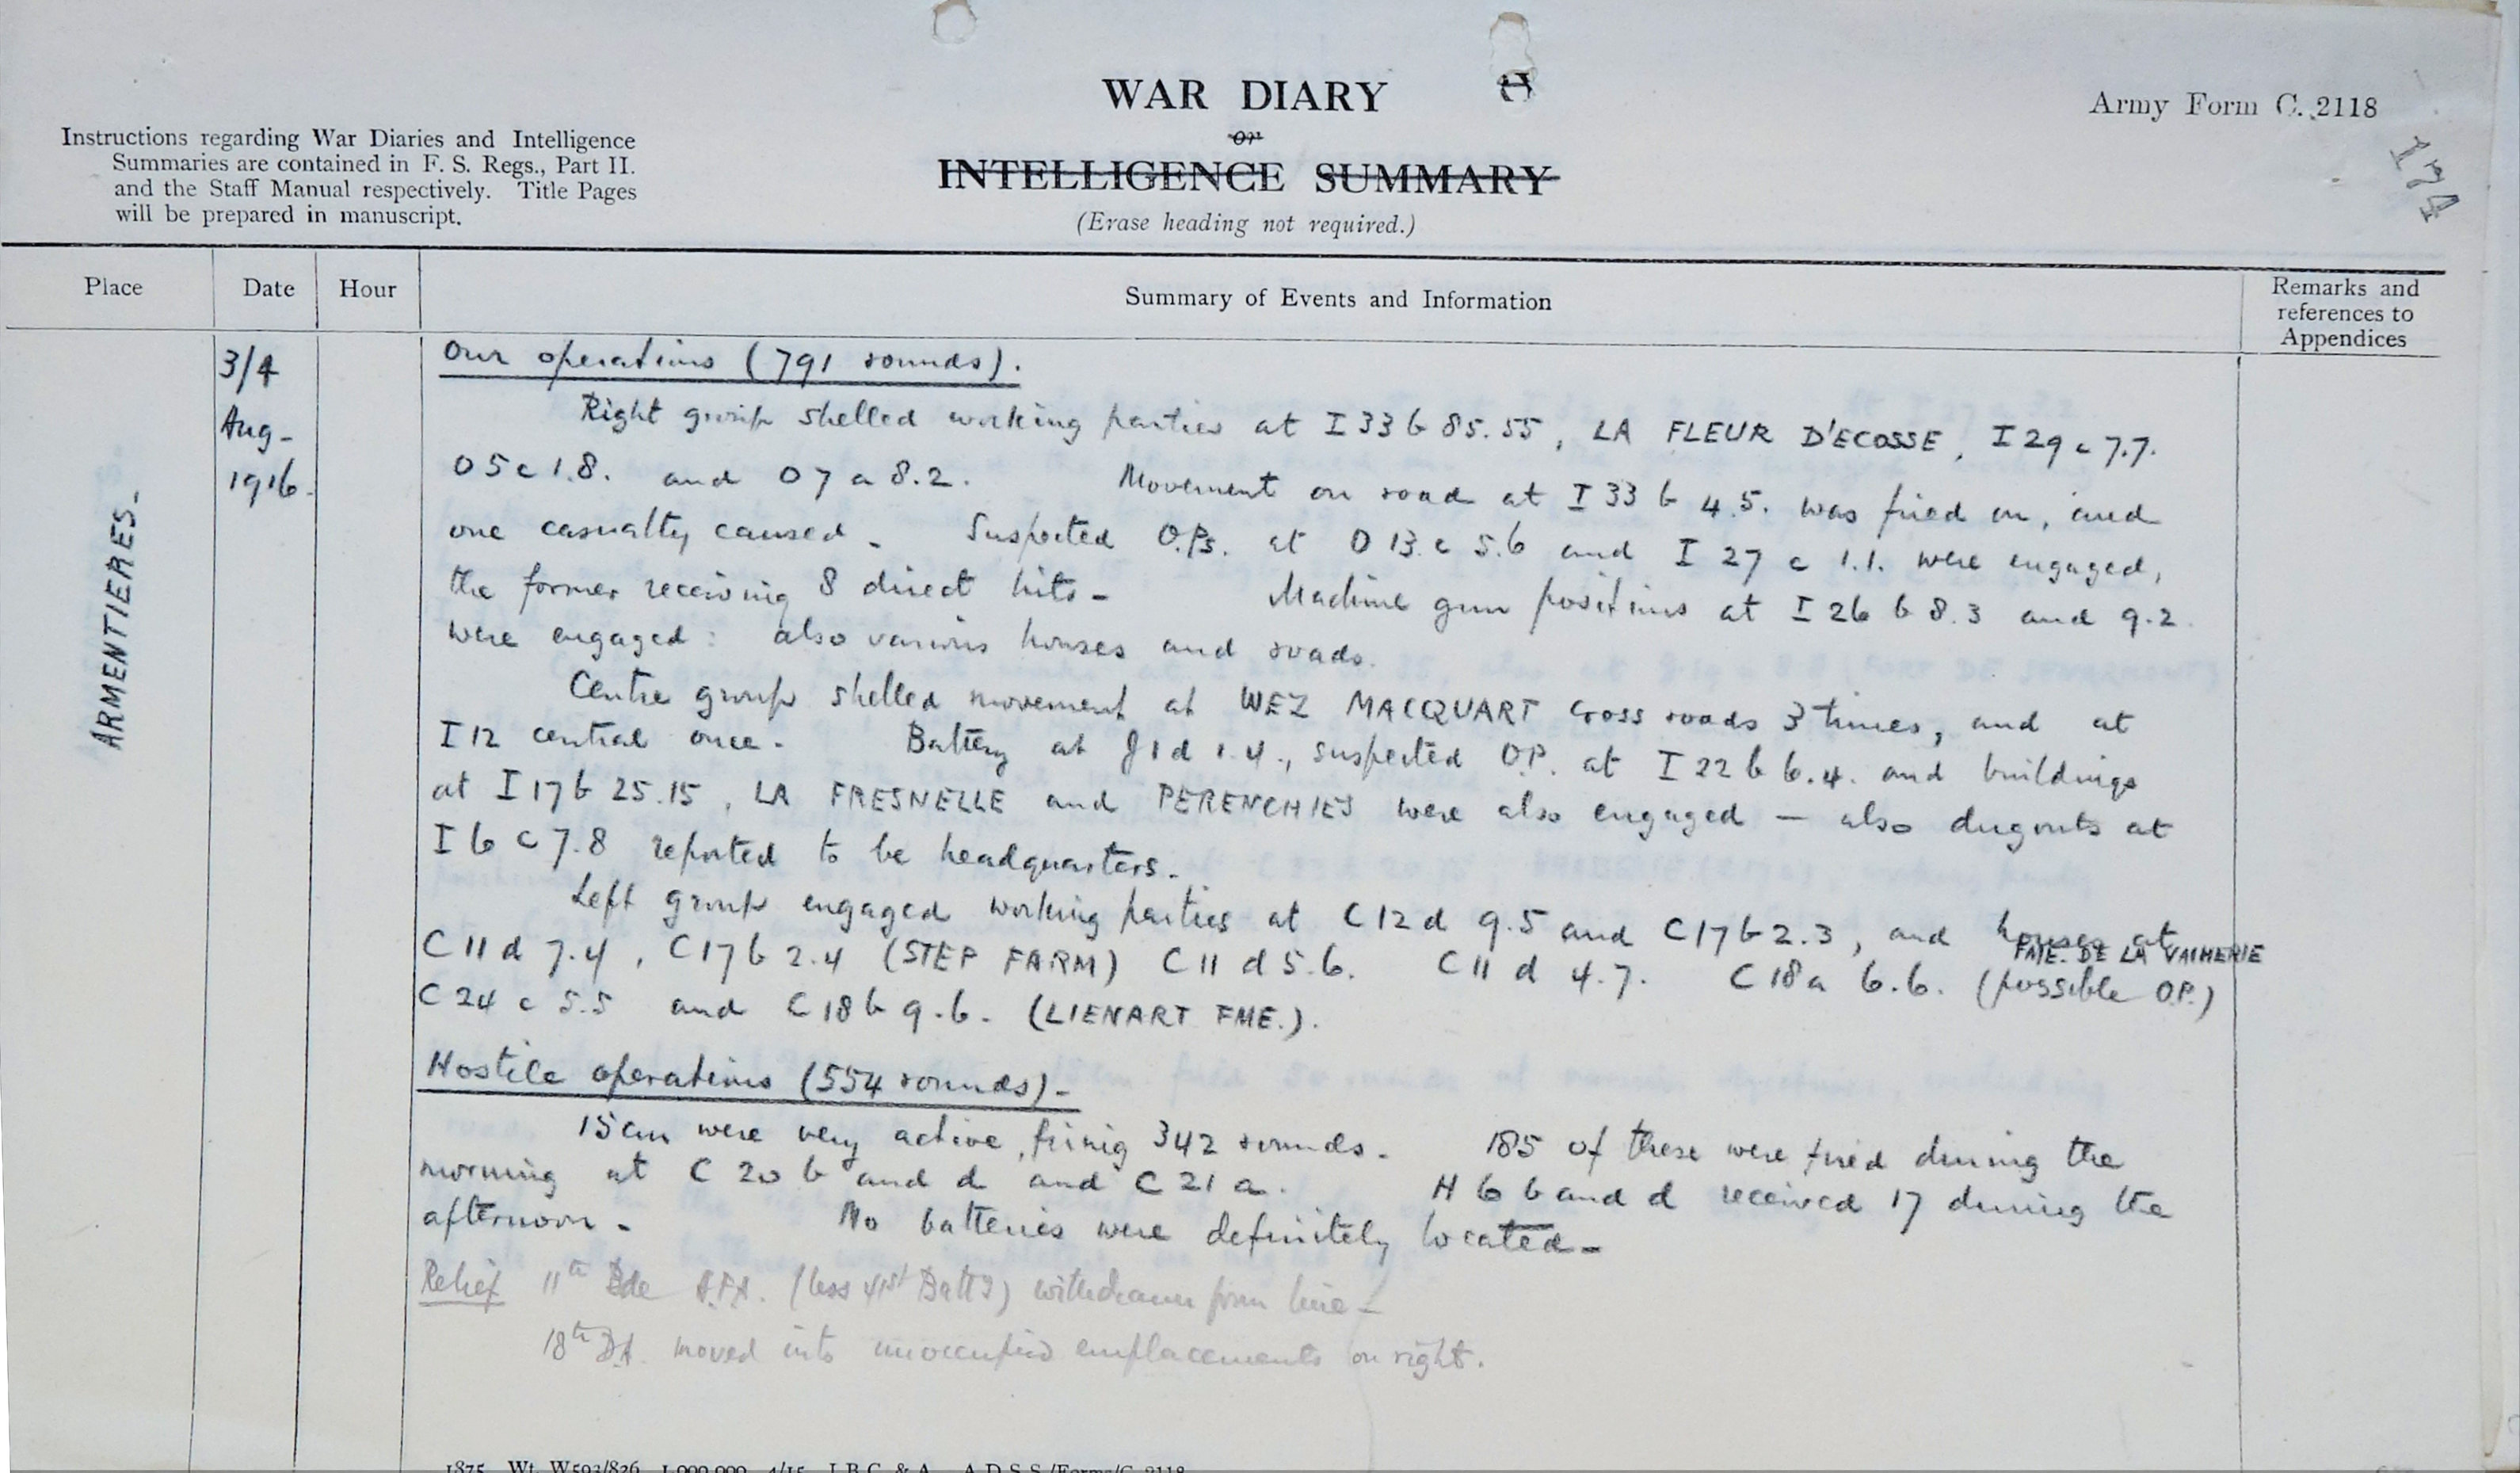 WAR DIARY
or
INTELLIGENCE SUMMARY
(Erase heading not required.)
Army Form C. 2118
174
Instructions regarding War Diaries and Intelligence
Summaries are contained in F. S. Regs., Part II.
and the Staff Manual respectively. Title Pages
will be prepared in manuscript.
Place
Date
Hour
Summary of Events and Information
Remarks and
references to
Appendices
ARMENTIERES.
3/4
Aug-
1916.
Our operations (791 rounds).
Right group shelled working parties at I 33 b 85.55, LA FLEUR D'ECOSSE, I 29 c 7.7.
O 5 c 1.8. and O 7 a 8.2. Movement on road at I 33 b 4.5. was fired on, and
one casualty caused. Suspected O.Ps. at O 13.c 5.6 and I 27 c 1.1. were engaged,
the former receiving 8 direct hits- Machine gun positions at I 26 b 8.3 and 9.2.
were engaged: also various houses and roads.
Centre group shelled movement at WEZ MACQUART cross roads 3 times, and at
I 12 central once- Battery at J 1 d 1.4., suspected O.P. at I 22 b 6.4. and buildings
at I 17 b 25.15, LA FRESNELLE and PERENCHIES were also engaged — also dugouts at
I 6 c 7.8 reported to be headquarters.
Left group engaged working parties at C 12 d 9.5 and C 17 b 2.3, and houses at
C 11 d 7.4, C 17 b 2.4 (STEP FARM) C 11 d 5.6. C 11 d 4.7. FME. DE LA C 18 a 6.6. (possible O.P.)
C 24 c 5.5 and C 18 b 9.6. (LIENART FME.).
Hostile operations (554 rounds)-
15cm were very active, firing 342 rounds. 185 of these were fired during the
morning at C 20 b and d and C 21 a. H 6 b and d received 17 during the
afternoon- No batteries were definitely located-
Relief 11th Bde A.F.A. (less 41st Batty) withdrawn from line-
18th D.A. moved into unoccupied emplacements on right.
1875 Wt. W593/826 1,000,000 4/15 J.B.C. & A. A.D.S.S./Forms/C. 2118.